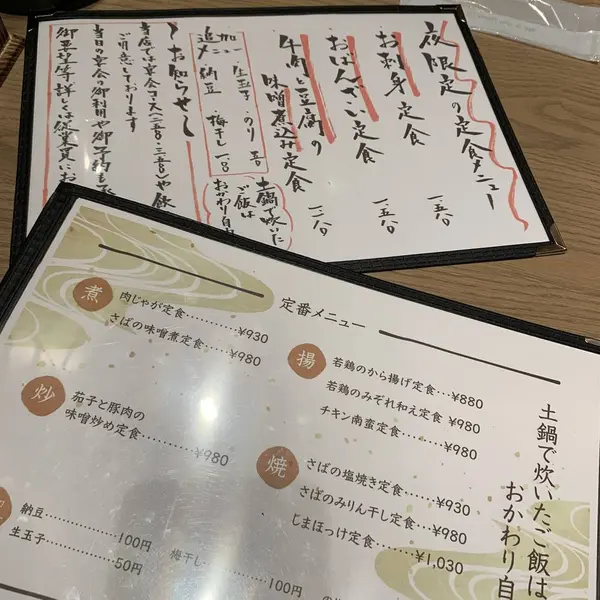 夜限定の定食メニュー
お刺身定食 一、五八〇
おばんざい定食 一、五八〇
牛肉と豆腐の
味噌煮込み定食 一、二八〇
土鍋で炊いた
ご飯は
おかわり自
追加メニュー
生玉子・のり 五〇
納豆・梅干し 一〇〇
〜お知らせ〜
当店では宴会コース(二五〇〇・三五〇〇)や飲
ご用意しております
当日の宴会の御利用や御予約も
御要望等詳しくは従業員にお
定番メニュー
煮
肉じゃが定食…………¥930
さばの味噌煮定食……¥980
炒
茄子と豚肉の
味噌炒め定食………¥980
揚
若鶏のから揚げ定食…¥880
若鶏のみぞれ和え定食 ¥980
チキン南蛮定食………¥980
焼
さばの塩焼き定食……¥930
さばのみりん干し定食…¥980
じまほっけ定食………¥1,030
納豆……………100円
生玉子…………50円
梅干し…………100円
土鍋で炊いたご飯は
おかわり自